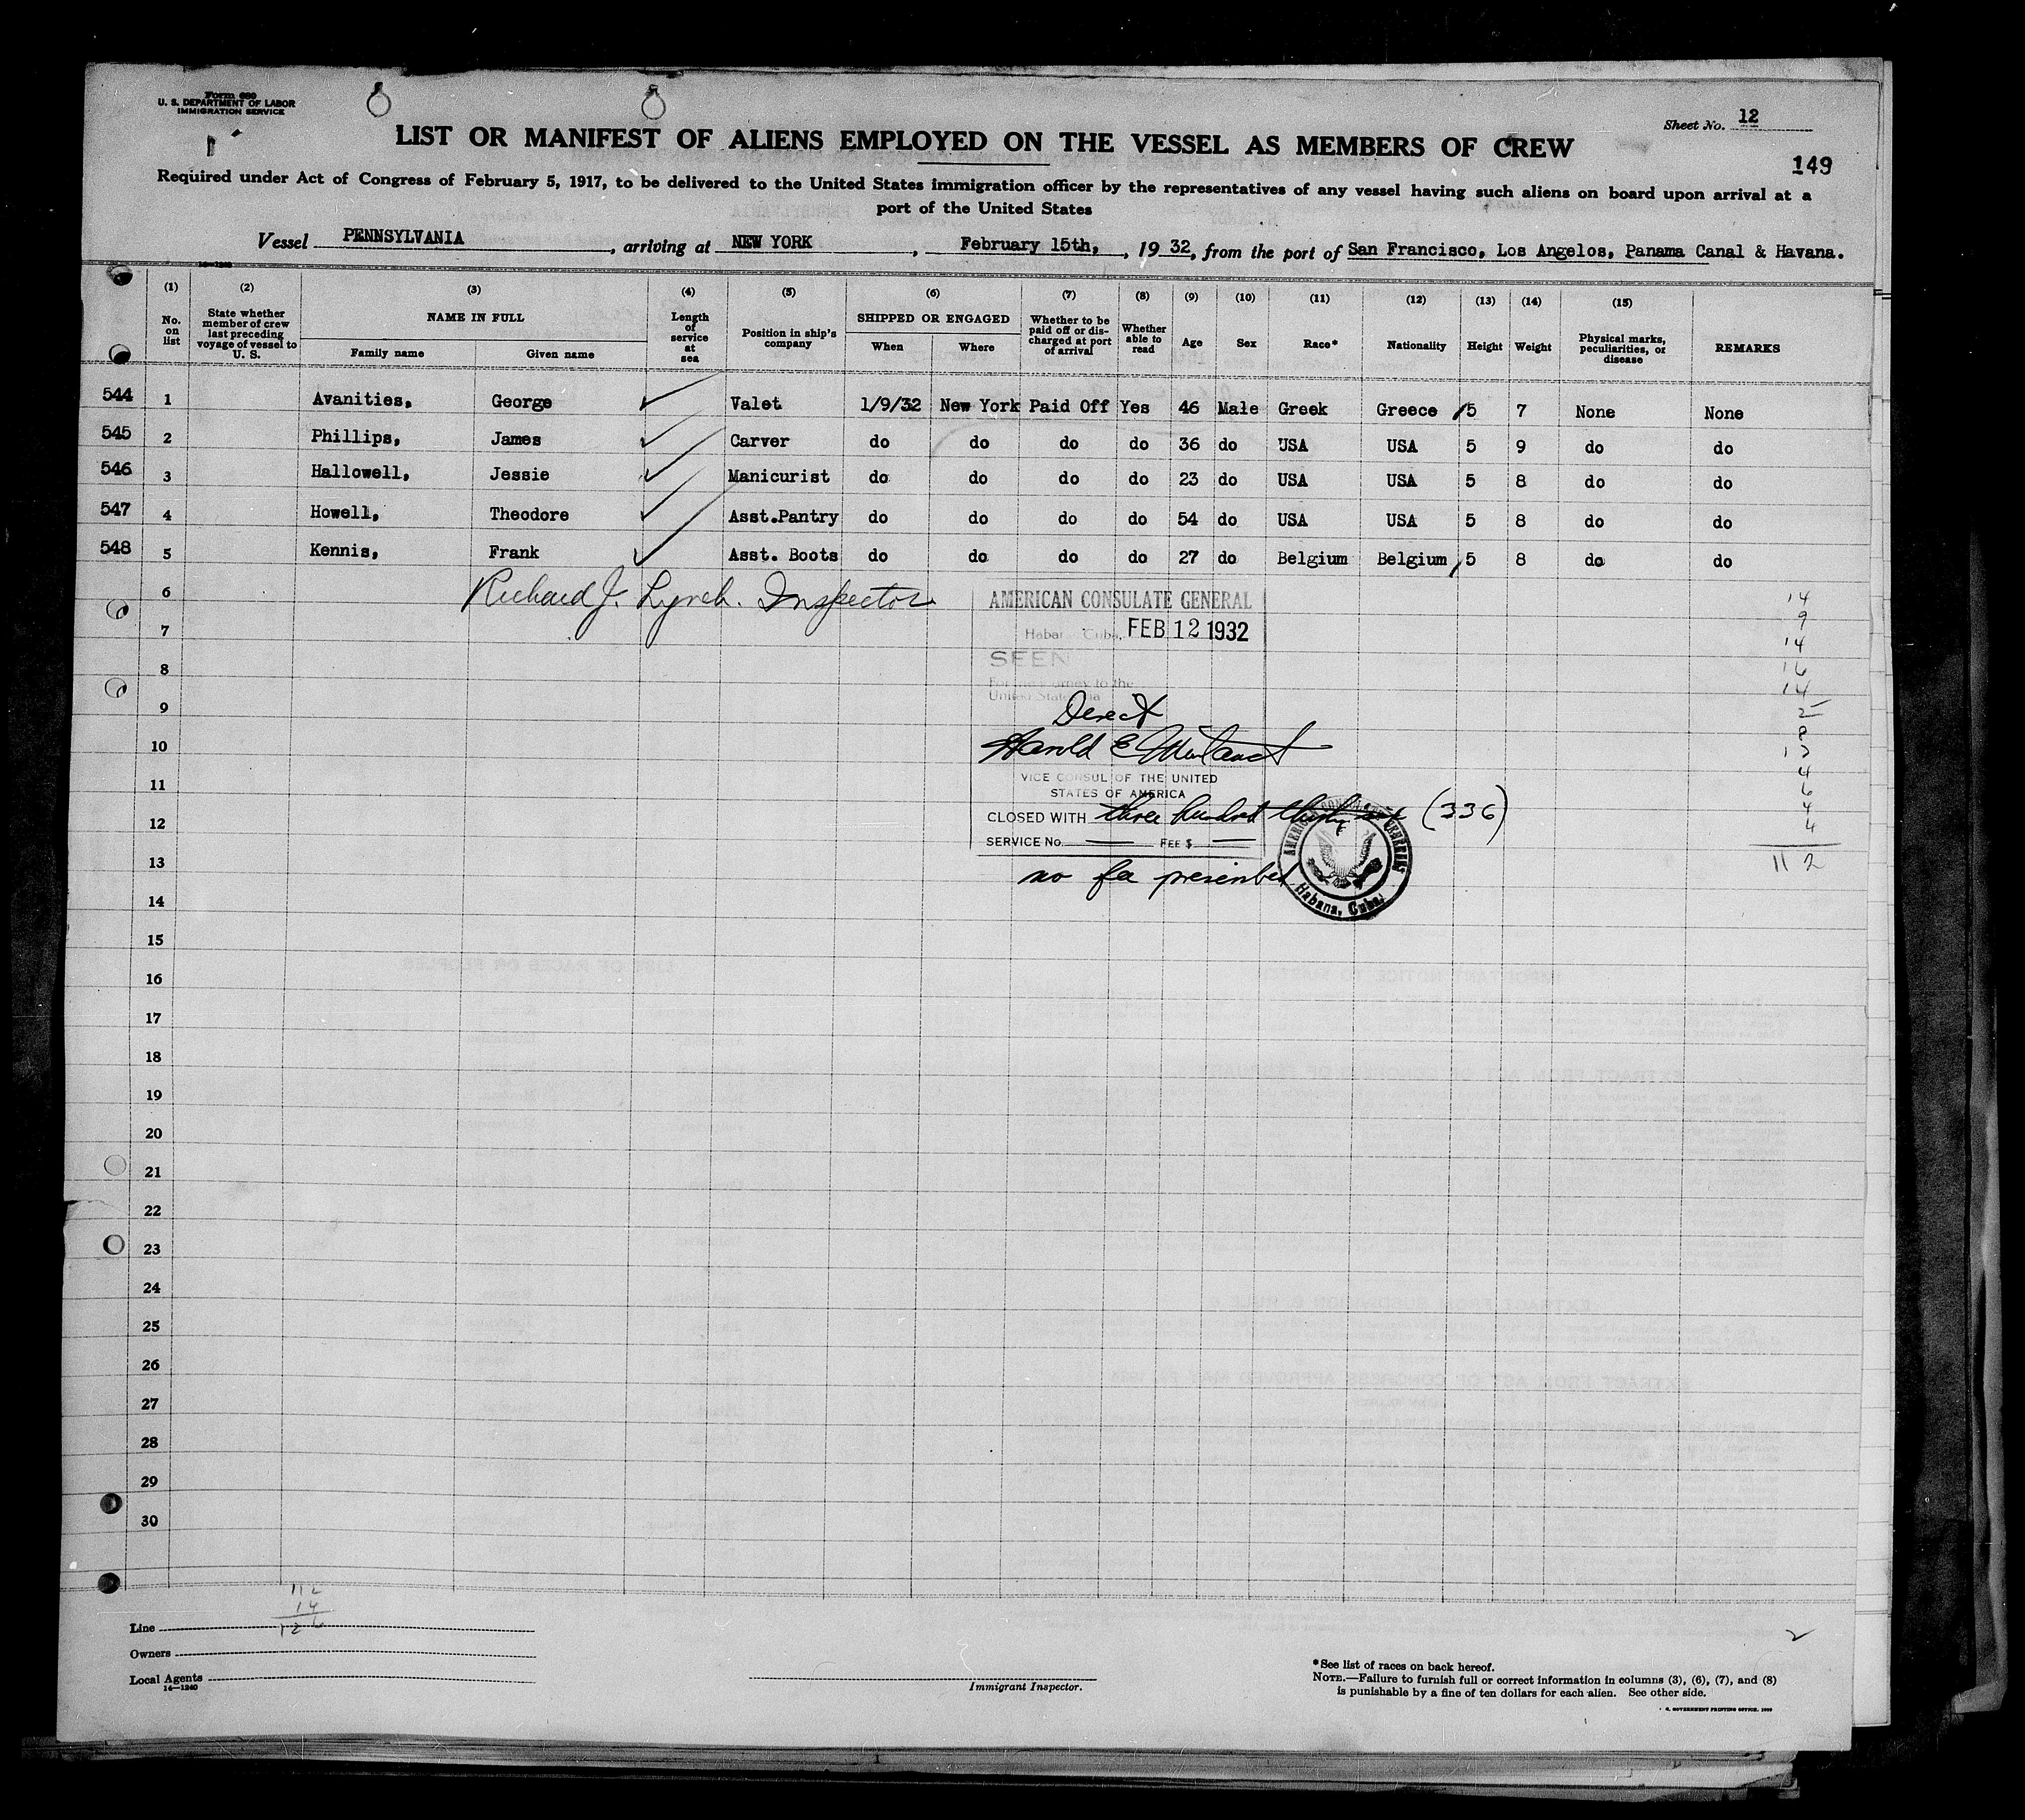 Form 680
U. S. DEPARTMENT OF LABOR
IMMIGRATION SERVICE
Sheet No. 12
LIST OR MANIFEST OF ALIENS EMPLOYED ON THE VESSEL AS MEMBERS OF CREW
149
Required under Act of Congress of February 5, 1917, to be delivered to the United States immigration officer by the representatives of any vessel having such aliens on board upon arrival at a
port of the United States
Vessel PENNSYLVANIA, arriving at NEW YORK, February 15th, , 19 32, from the port of San Francisco, Los Angelos, Panama Canal & Havana.
14-1240
(1) (2) (3) (4) (5) (6) (7) (8) (9) (10) (11) (12) (13) (14) (15)
No. on list State whether member of crew last preceding voyage of vessel to U. S. NAME IN FULL Length of service at sea Position in ship's company SHIPPED OR ENGAGED Whether to be paid off or discharged at port of arrival Whether able to read Age Sex Race* Nationality Height Weight Physical marks, peculiarities, or disease REMARKS
Family name Given name When Where
544 1 Avanities, George Valet 1/9/32 New York Paid Off Yes 46 Male Greek Greece 5 7 None None
545 2 Phillips, James Carver do do do do 36 do USA USA 5 9 do do
546 3 Hallowell, Jessie Manicurist do do do do 23 do USA USA 5 8 do do
547 4 Howell, Theodore Asst.Pantry do do do do 54 do USA USA 5 8 do do
548 5 Kennis, Frank Asst. Boots do do do do 27 do Belgium Belgium 5 8 do do
6 Richard J. Lynch. Inspector
AMERICAN CONSULATE GENERAL
7 Habana, Cuba, FEB 12 1932
8 SEEN
For the journey to the
United States via
9 Direct
10 Harold E
VICE CONSUL OF THE UNITED
11 STATES OF AMERICA
12 CLOSED WITH three hundred thirty six (336)
SERVICE No. FEE $
13 no fee prescribed
AMERICAN CONSULATE GENERAL
Habana, Cuba.
14
9
14
16
14
2
8
13
4
6
4
4
112
14
15
16
17
18
19
20
21
22
23
24
25
26
27
28
29
30
112
14
126
Line
Owners
Local Agents
14-1240
Immigrant Inspector.
2
*See list of races on back hereof.
NOTE.—Failure to furnish full or correct information in columns (3), (6), (7), and (8)
is punishable by a fine of ten dollars for each alien. See other side.
GOVERNMENT PRINTING OFFICE.